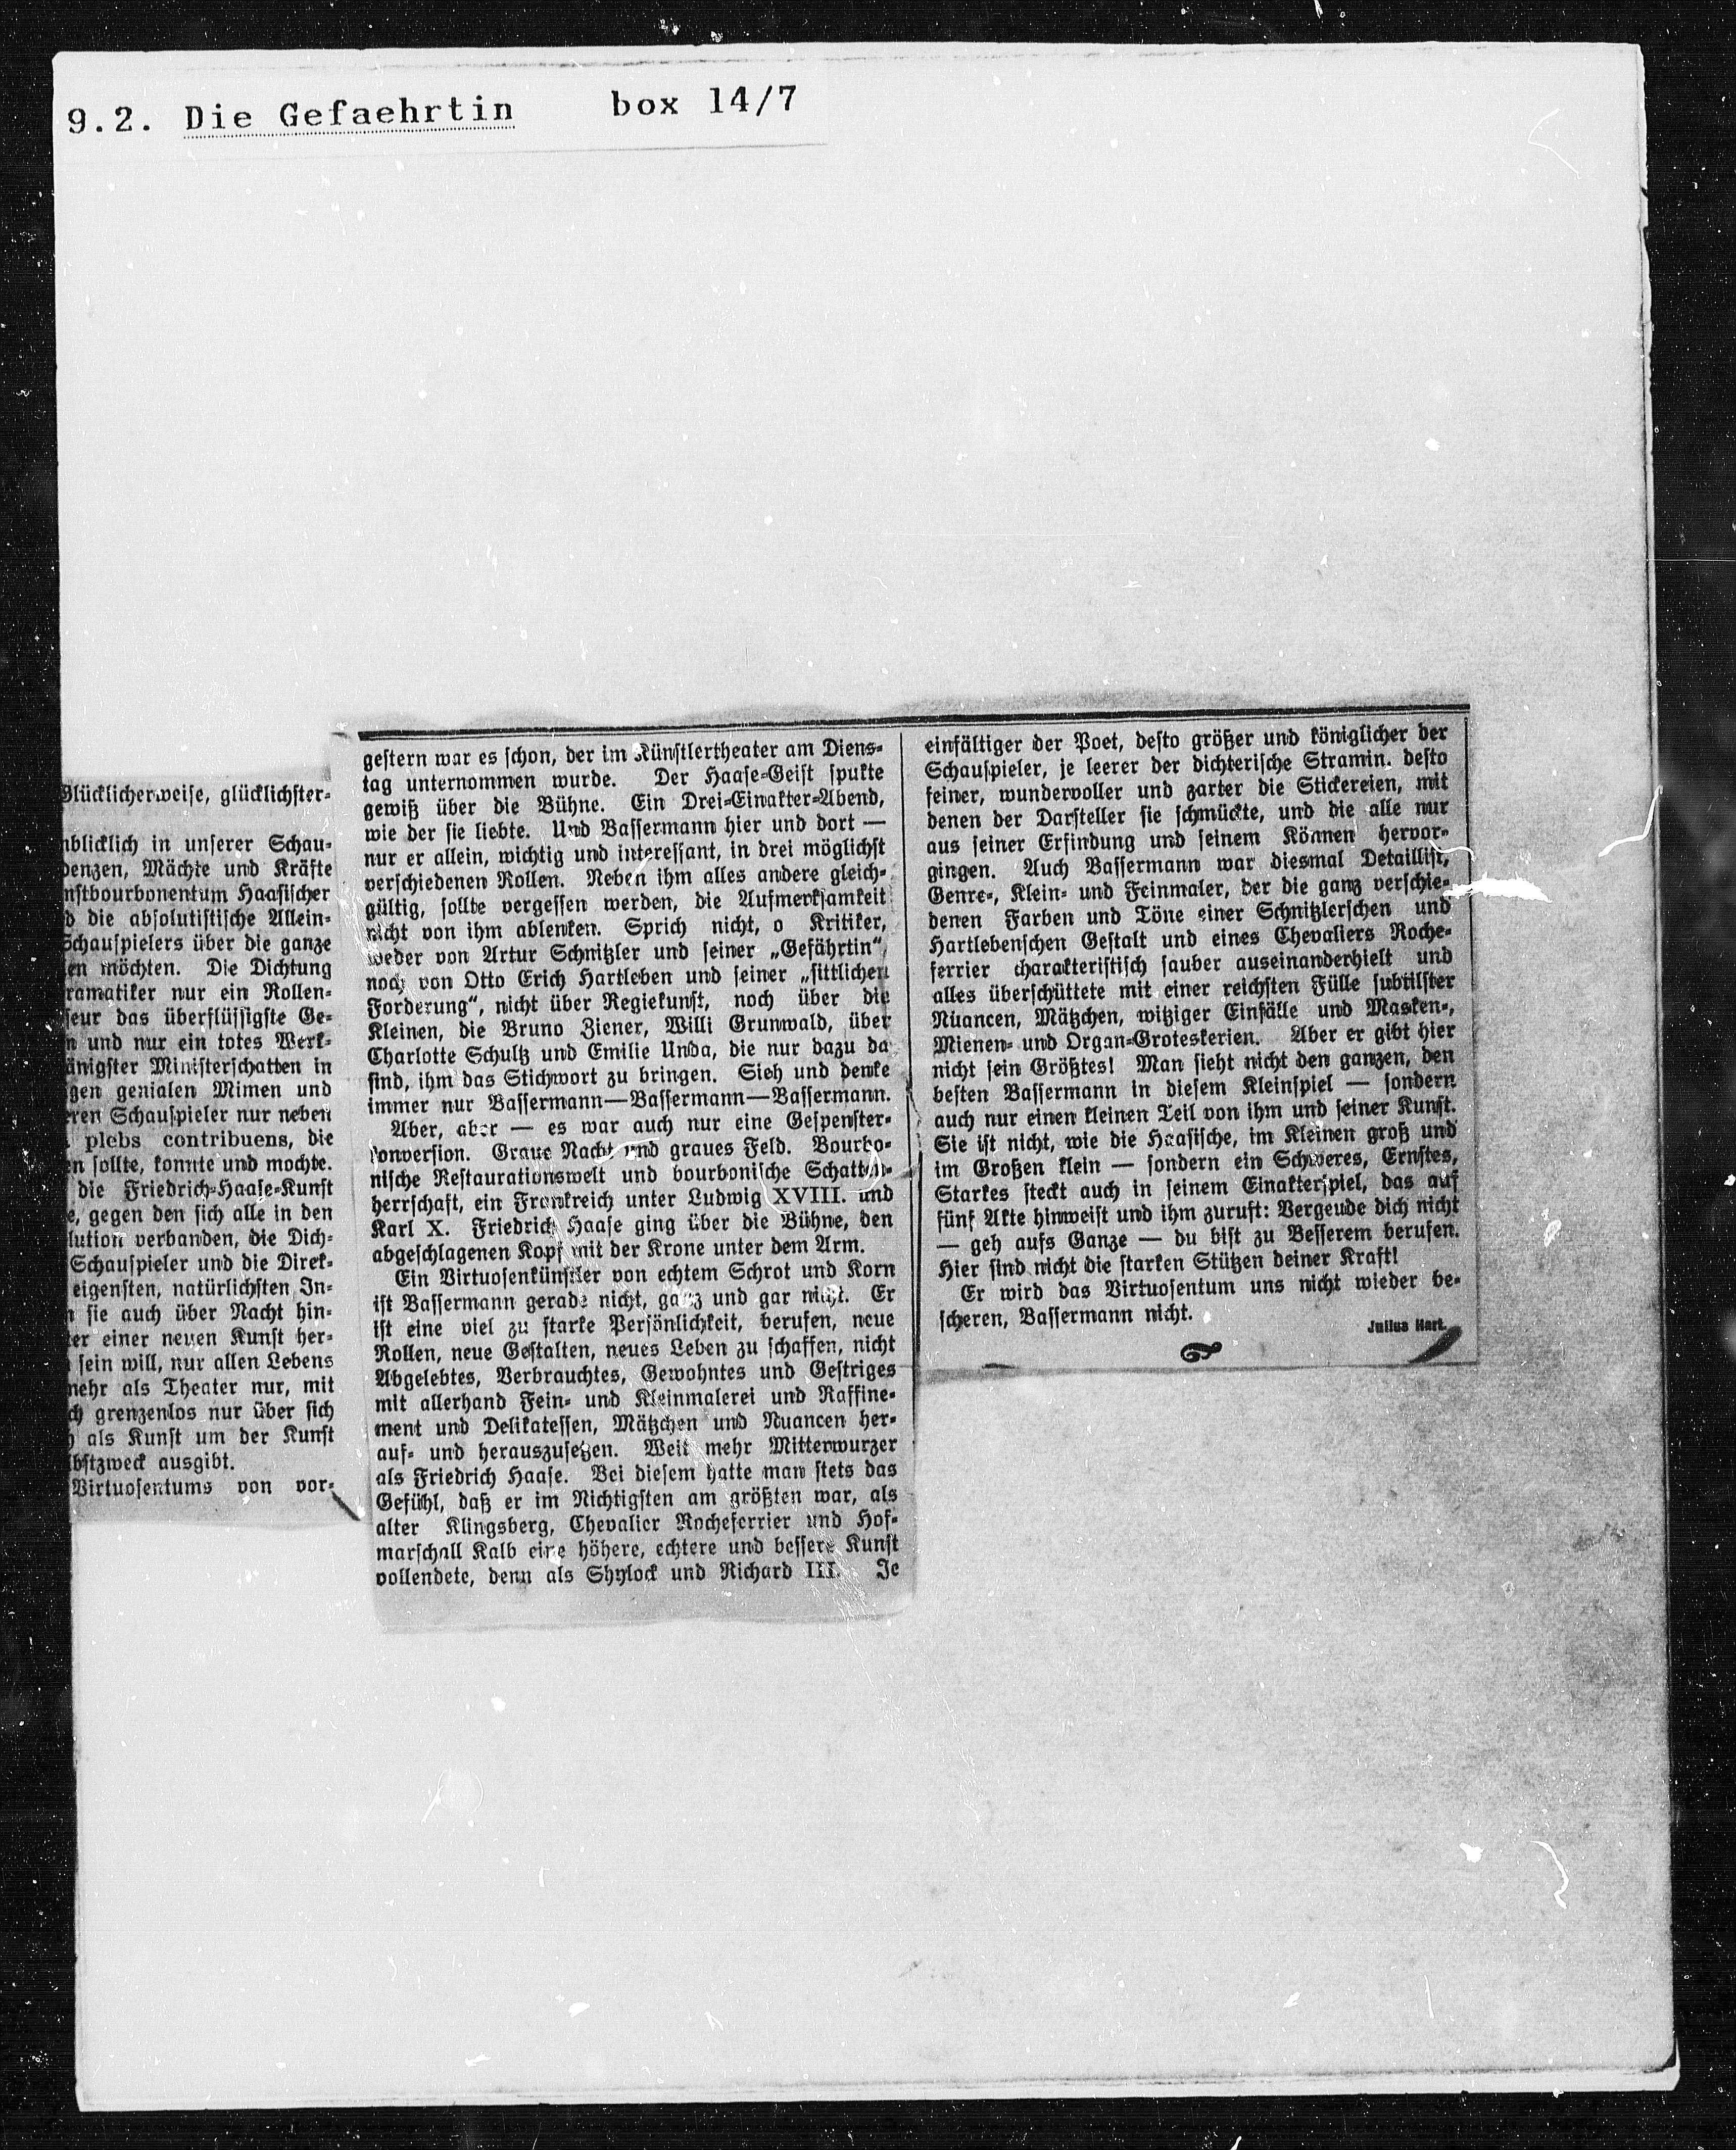 9.2. Die Gefaehrtin box 14/7
Glücklicherweise, glücklichster-
nblicklich in unserer Schau-
denzen, Mächte und Kräfte
nstbourbonentum Haasischer
d die absolutistische Allein-
Schauspielers über die ganze
en möchten. Die Dichtung
ramatiker nur ein Rollen-
seur das überflüssigste Ge-
n und nur ein totes Werk-
änigster Ministerschatten in
gen genialen Mimen und
eren Schauspieler nur neben
plebs contribuens, die
en sollte, konnte und mochte.
die Friedrich-Haase-Kunst
e, gegen den sich alle in den
lution verbanden, die Dich-
Schauspieler und die Direk-
eigensten, natürlichsten In-
n sie auch über Nacht hin-
er einer neuen Kunst her-
sein will, nur allen Lebens
mehr als Theater nur, mit
ch grenzenlos nur über sich
h als Kunst um der Kunst
lbstzweck ausgibt.
Virtuosentums von vor-
gestern war es schon, der im Künstlertheater am Diens-
tag unternommen wurde. Der Haase-Geist spukte
gewiß über die Bühne. Ein Drei-Einakter-Abend,
wie der sie liebte. Und Bassermann hier und dort —
nur er allein, wichtig und interessant, in drei möglichst
verschiedenen Rollen. Neben ihm alles andere gleich-
gültig, sollte vergessen werden, die Aufmerksamkeit
nicht von ihm ablenken. Sprich nicht, o Kritiker,
weder von Artur Schnitzler und seiner „Gefährtin“,
noch von Otto Erich Hartleben und seiner „sittlichen
Forderung“, nicht über Regiekunst, noch über die
Kleinen, die Bruno Ziener, Willi Grunwald, über
Charlotte Schultz und Emilie Unda, die nur dazu da
sind, ihm das Stichwort zu bringen. Sieh und denke
immer nur Bassermann—Bassermann—Bassermann.
Aber, aber — es war auch nur eine Gespenster-
konversion. Graue Nacht und graues Feld. Bourbo-
nische Restaurationswelt und bourbonische Schatten-
herrschaft, ein Frankreich unter Ludwig XVIII. und
Karl X. Friedrich Haase ging über die Bühne, den
abgeschlagenen Kopf mit der Krone unter dem Arm.
Ein Virtuosenkünstler von echtem Schrot und Korn
ist Bassermann gerade nicht, ganz und gar nicht. Er
ist eine viel zu starke Persönlichkeit, berufen, neue
Rollen, neue Gestalten, neues Leben zu schaffen, nicht
Abgelebtes, Verbrauchtes, Gewohntes und Gestriges
mit allerhand Fein- und Kleinmalerei und Raffine-
ment und Delikatessen, Mätzchen und Nuancen her-
auf- und herauszusetzen. Weit mehr Mitterwurzer
als Friedrich Haase. Bei diesem hatte man stets das
Gefühl, daß er im Nichtigsten am größten war, als
alter Klingsberg, Chevalier Rocheferrier und Hof-
marschall Kalb eine höhere, echtere und bessere Kunst
vollendete, denn als Shylock und Richard III. Je
einfältiger der Poet, desto größer und königlicher der
Schauspieler, je leerer der dichterische Stramin. desto
feiner, wundervoller und zarter die Stickereien, mit
denen der Darsteller sie schmückte, und die alle nur
aus seiner Erfindung und seinem Können hervor-
gingen. Auch Bassermann war diesmal Detaillist,
Genre-, Klein- und Feinmaler, der die ganz verschie-
denen Farben und Töne einer Schnitzlerschen und
Hartlebenschen Gestalt und eines Chevaliers Roche-
ferrier charakteristisch sauber auseinanderhielt und
alles überschüttete mit einer reichsten Fülle subtilster
Nüancen, Mätzchen, witziger Einfälle und Masken-,
Mienen- und Organ-Groteskerien. Aber er gibt hier
nicht sein Größtes! Man sieht nicht den ganzen, den
besten Bassermann in diesem Kleinspiel — sondern
auch nur einen kleinen Teil von ihm und seiner Kunst.
Sie ist nicht, wie die Haasische, im Kleinen groß und
im Großen klein — sondern ein Schweres, Ernstes,
Starkes steckt auch in seinem Einakterspiel, das auf
fünf Akte hinweist und ihm zuruft: Vergeude dich nicht
— geh aufs Ganze — du bist zu Besserem berufen.
Hier sind nicht die starken Stützen deiner Kraft!
Er wird das Virtuosentum uns nicht wieder be-
scheren, Bassermann nicht.
Julius Hart.